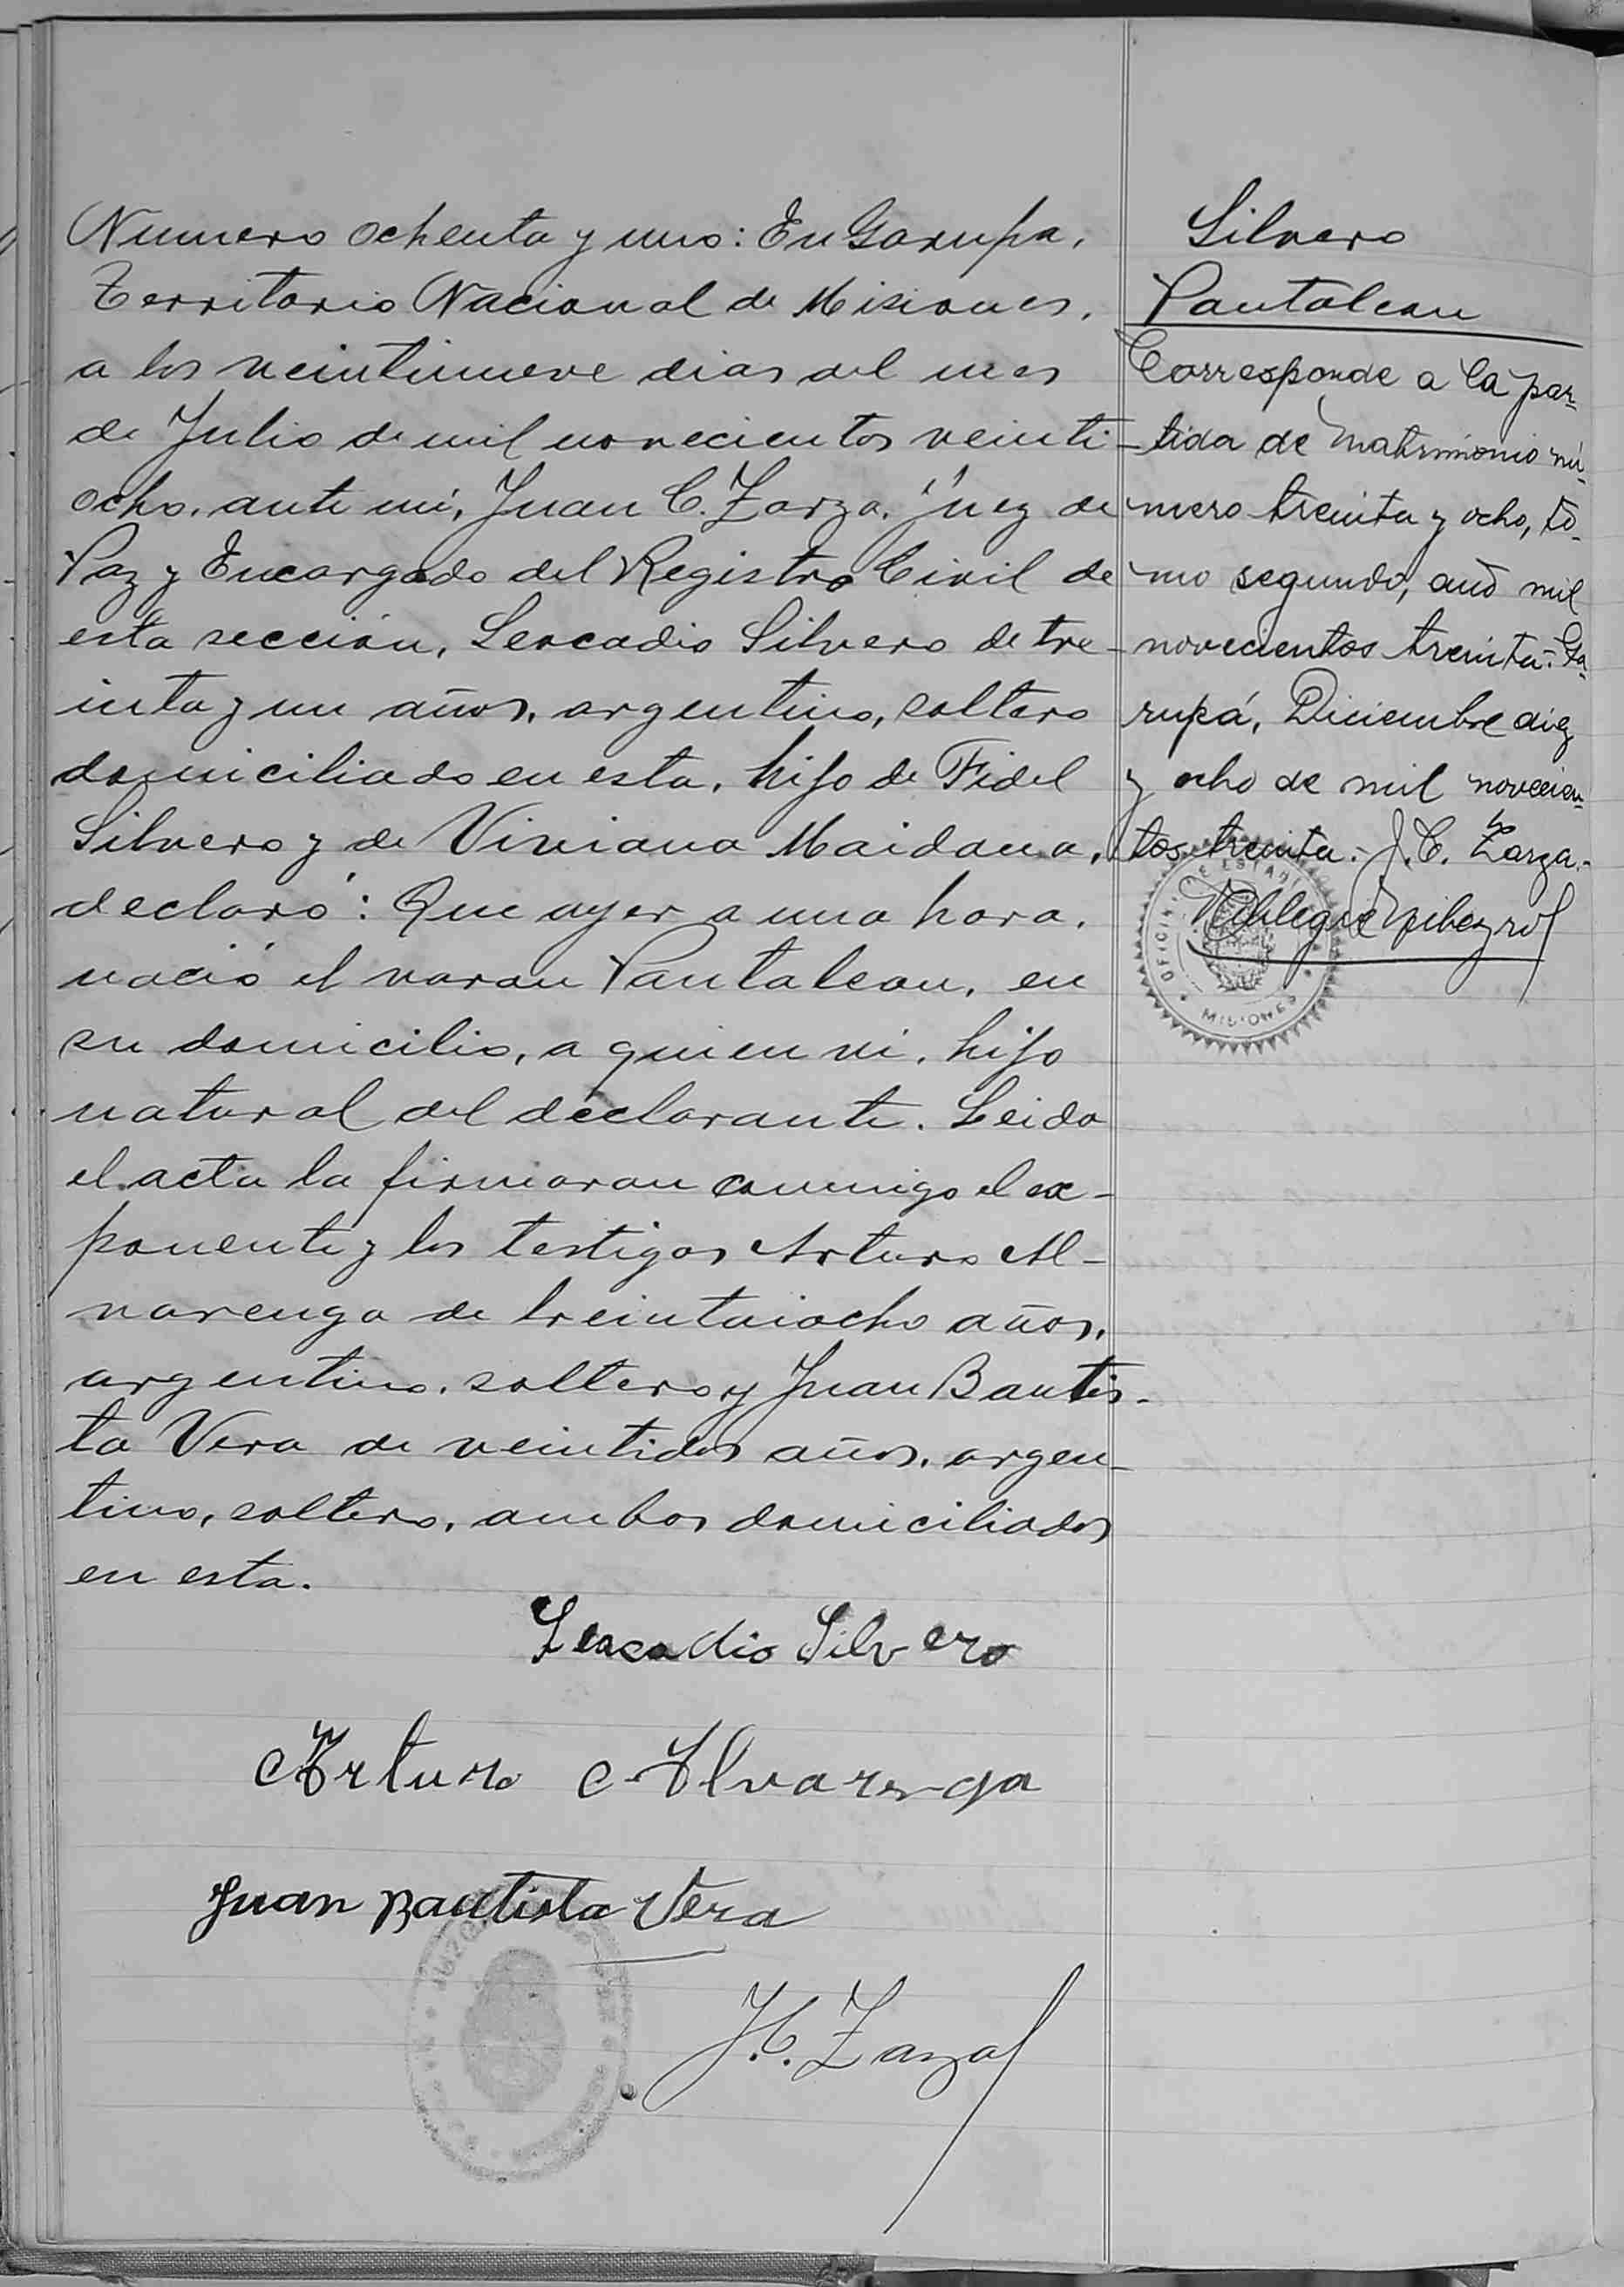 Numero ochenta y uno: En Garupa,
Territorio Nacional de Misiones,
a los veintinueve dias del mes
de Julio de mil novecientos veinti-
ocho, ante mi, Juan C. Zarza, Juez de
Paz y Encargado del Registro Civil de
esta sección, Leocadio Silvero de tre-
inta y un años, argentino, soltero
domiciliado en esta, hijo de Fidel
Silvero y de Viviana Maidana,
declaró: Que ayer a una hora,
nació el varon Pantaleon, en
su domicilio, a quien vi, hijo
natural del declarante. Leida
el acta la firmaron conmigo el ex-
ponente y los testigos Arturo Al-
varenga de treintaiocho años,
argentino, soltero y Juan Bautis-
ta Vera de veintidos años, argen-
tino, soltero, ambos domiciliados
en esta.
Leocadio Silvero
Arturo Alvarenga
Juan Bautista Vera
J.C. Zarza
Silvero
Pantaleon
Corresponde a la par-
tida de matrimonio nú-
mero treinta y ocho, to-
mo segundo, año mil
novecientos treinta.- Ga-
rupá, Diciembre diez
y ocho de mil novecien-
tos treinta.- J.C. Zarza.-
MISIONES